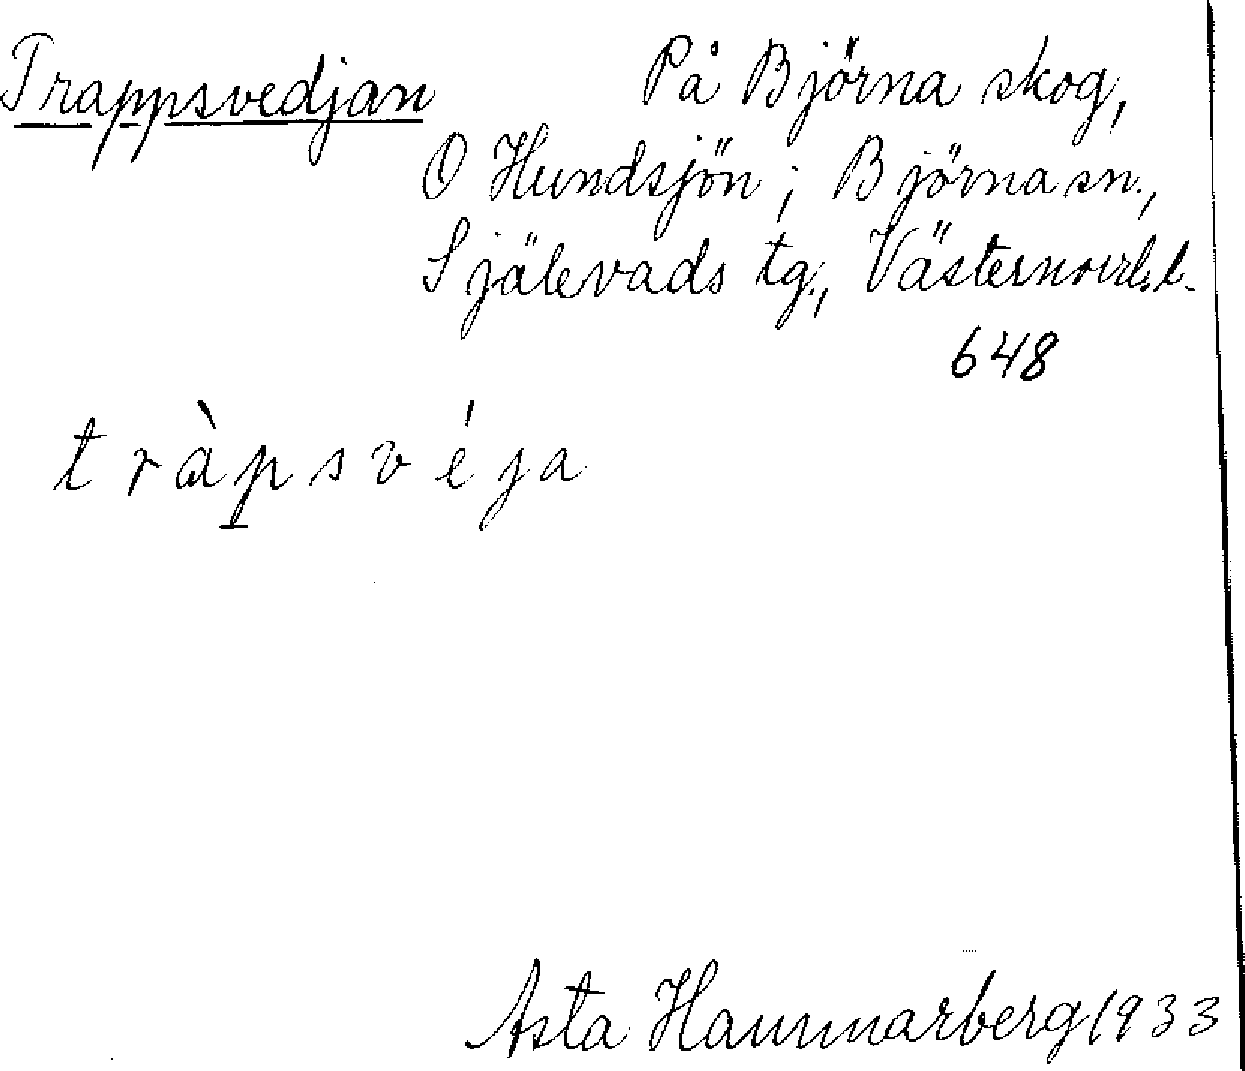 Trappsvedjan På Björna skog,
O Hundsjön; Björna sn.,
Själevads tg., Västernorrl.l.
648
tràpsvéja
Asta Hammarberg 1933